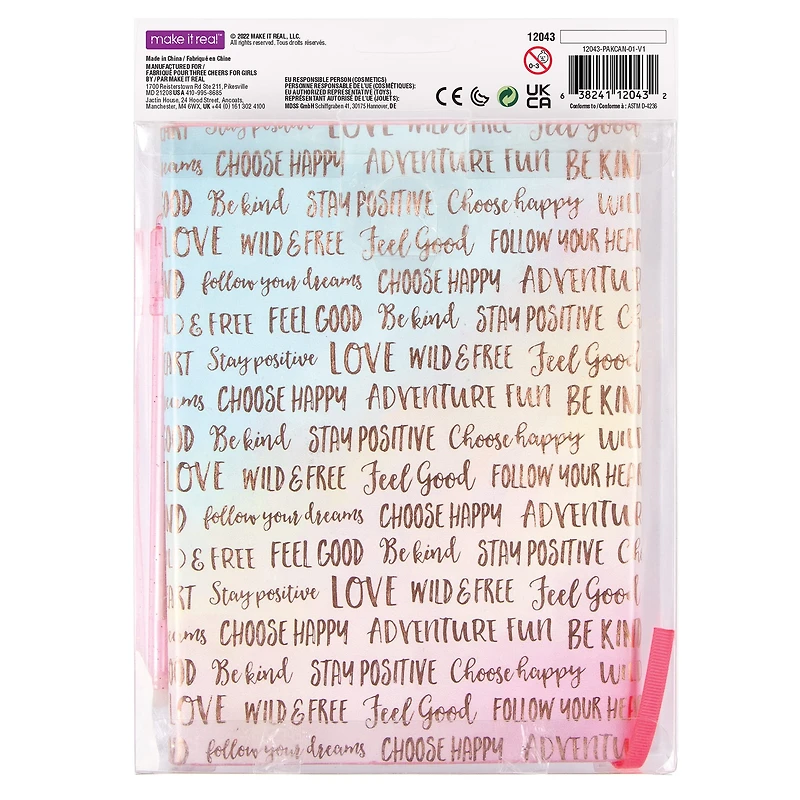 make it real™
© 2022 MAKE IT REAL, LLC.
All rights reserved. Tous droits réservés.
Made in China / Fabriqué en Chine
MANUFACTURED FOR /
FABRIQUÉ POUR THREE CHEERS FOR GIRLS
BY / PAR MAKE IT REAL
1700 Reisterstown Rd Ste 211, Pikesville
MD 21208 USA 410-995-8685
Jactin House, 24 Hood Street, Ancoats,
Manchester, M4 6WX, UK +44 (0) 161 302 4100
EU RESPONSIBLE PERSON (COSMETICS)
PERSONNE RESPONSABLE DE L'UE (COSMÉTIQUES):
EU AUTHORIZED REPRESENTATIVE (TOYS)
REPRÉSENTANT AUTORISÉ DE L'UE (JOUETS):
MDSS GmbH Schiffgraben 41, 30175 Hannover, DE
0-3
CE
UK
CA
12043
12043-PAKCAN-01-V1
6 38241 12043 2
Conforms to / Conforme à : ASTM D-4236
ART Stay positive LOVE WILD & FREE Feel Good
dreams CHOOSE HAPPY ADVENTURE FUN BE KIND
GOOD Be kind STAY POSITIVE Choose happy WILD
LOVE WILD & FREE Feel Good FOLLOW YOUR HEAR
ND follow your dreams CHOOSE HAPPY ADVENTUR
LD & FREE FEEL GOOD Be kind STAY POSITIVE Ch
ART Stay positive LOVE WILD & FREE Feel Good
eams CHOOSE HAPPY ADVENTURE FUN BE KIND
OOD Be kind STAY POSITIVE Choose happy WIL
LOVE WILD & FREE Feel Good FOLLOW YOUR HEA
ND follow your dreams CHOOSE HAPPY ADVENTUR
LD & FREE FEEL GOOD Be kind STAY POSITIVE Ch
ART Stay positive LOVE WILD & FREE Feel Good
eams CHOOSE HAPPY ADVENTURE FUN BE KIND
OOD Be kind STAY POSITIVE Choose happy WIL
LOVE WILD & FREE Feel Good FOLLOW YOUR HEA
ND follow your dreams CHOOSE HAPPY ADVENTU